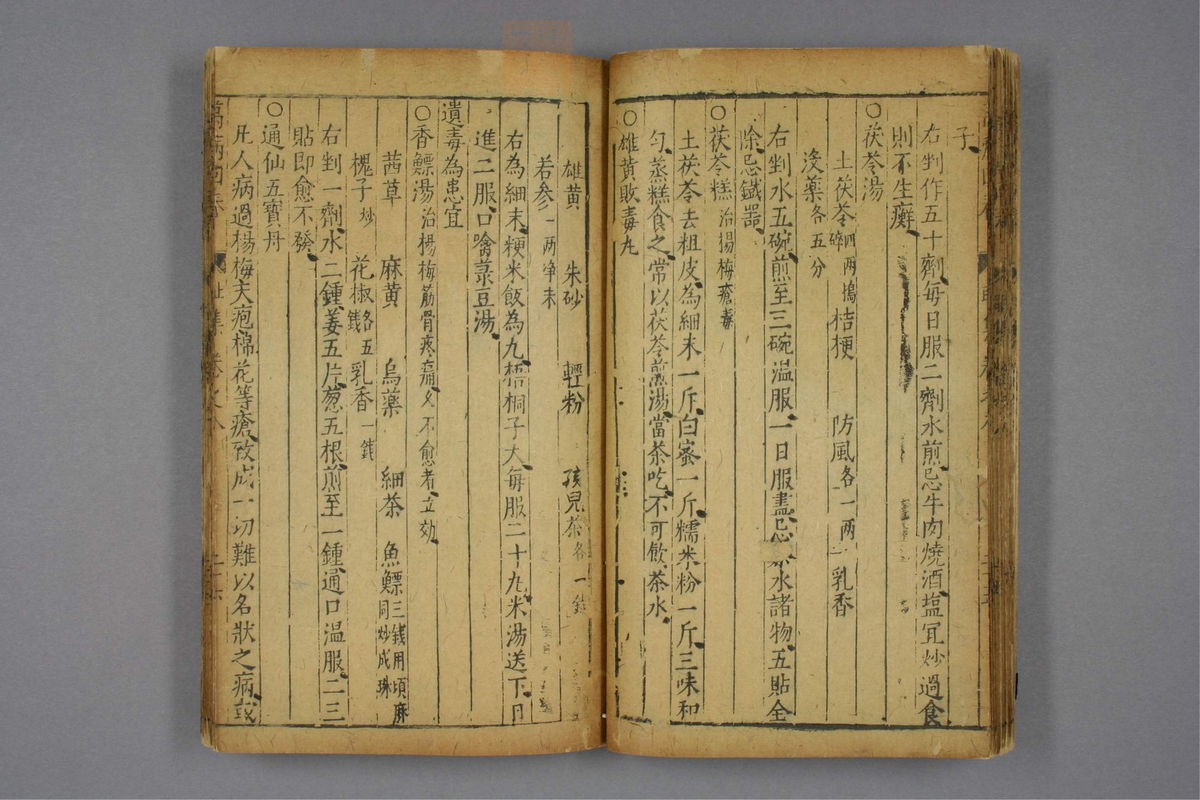 子
右剉作五十劑每日服二劑水煎忌牛肉燒酒塩冝炒過食
則不生癬
○茯苓湯
土茯苓四兩搗碎 桔梗 防風各一两 乳香
沒藥各五分
右剉水五碗煎至三碗温服一日服盡忌 水諸物五貼全
除忌鐵器
○茯苓糕治揚梅瘡毒
土茯苓去粗皮為細末一斤白蜜一斤糯米粉一斤三味和
匀蒸糕食之常以茯苓煎湯當茶吃不可飲茶水
○雄黄敗毒丸
雄黄 朱砂 輕粉 孩兒茶各一錢
若参一两净末
右為細末粳米飯為丸梧桐子大每服二十九米湯送下日
進二服口噙菉豆湯
遺毒為患宜
○香鰾湯治楊梅筋骨疼痛久不愈者立効
茜草 麻黄 烏藥 細茶 魚鰾三錢用頃麻同炒成珠
槐子炒 花椒各五錢 乳香一錢
右剉一劑水二鍾姜五片葱五根煎至一鍾通口温服二三
貼即愈不發
○通仙五寳丹
凡人病過楊梅天疱棉花等瘡致成一切難以名狀之病或